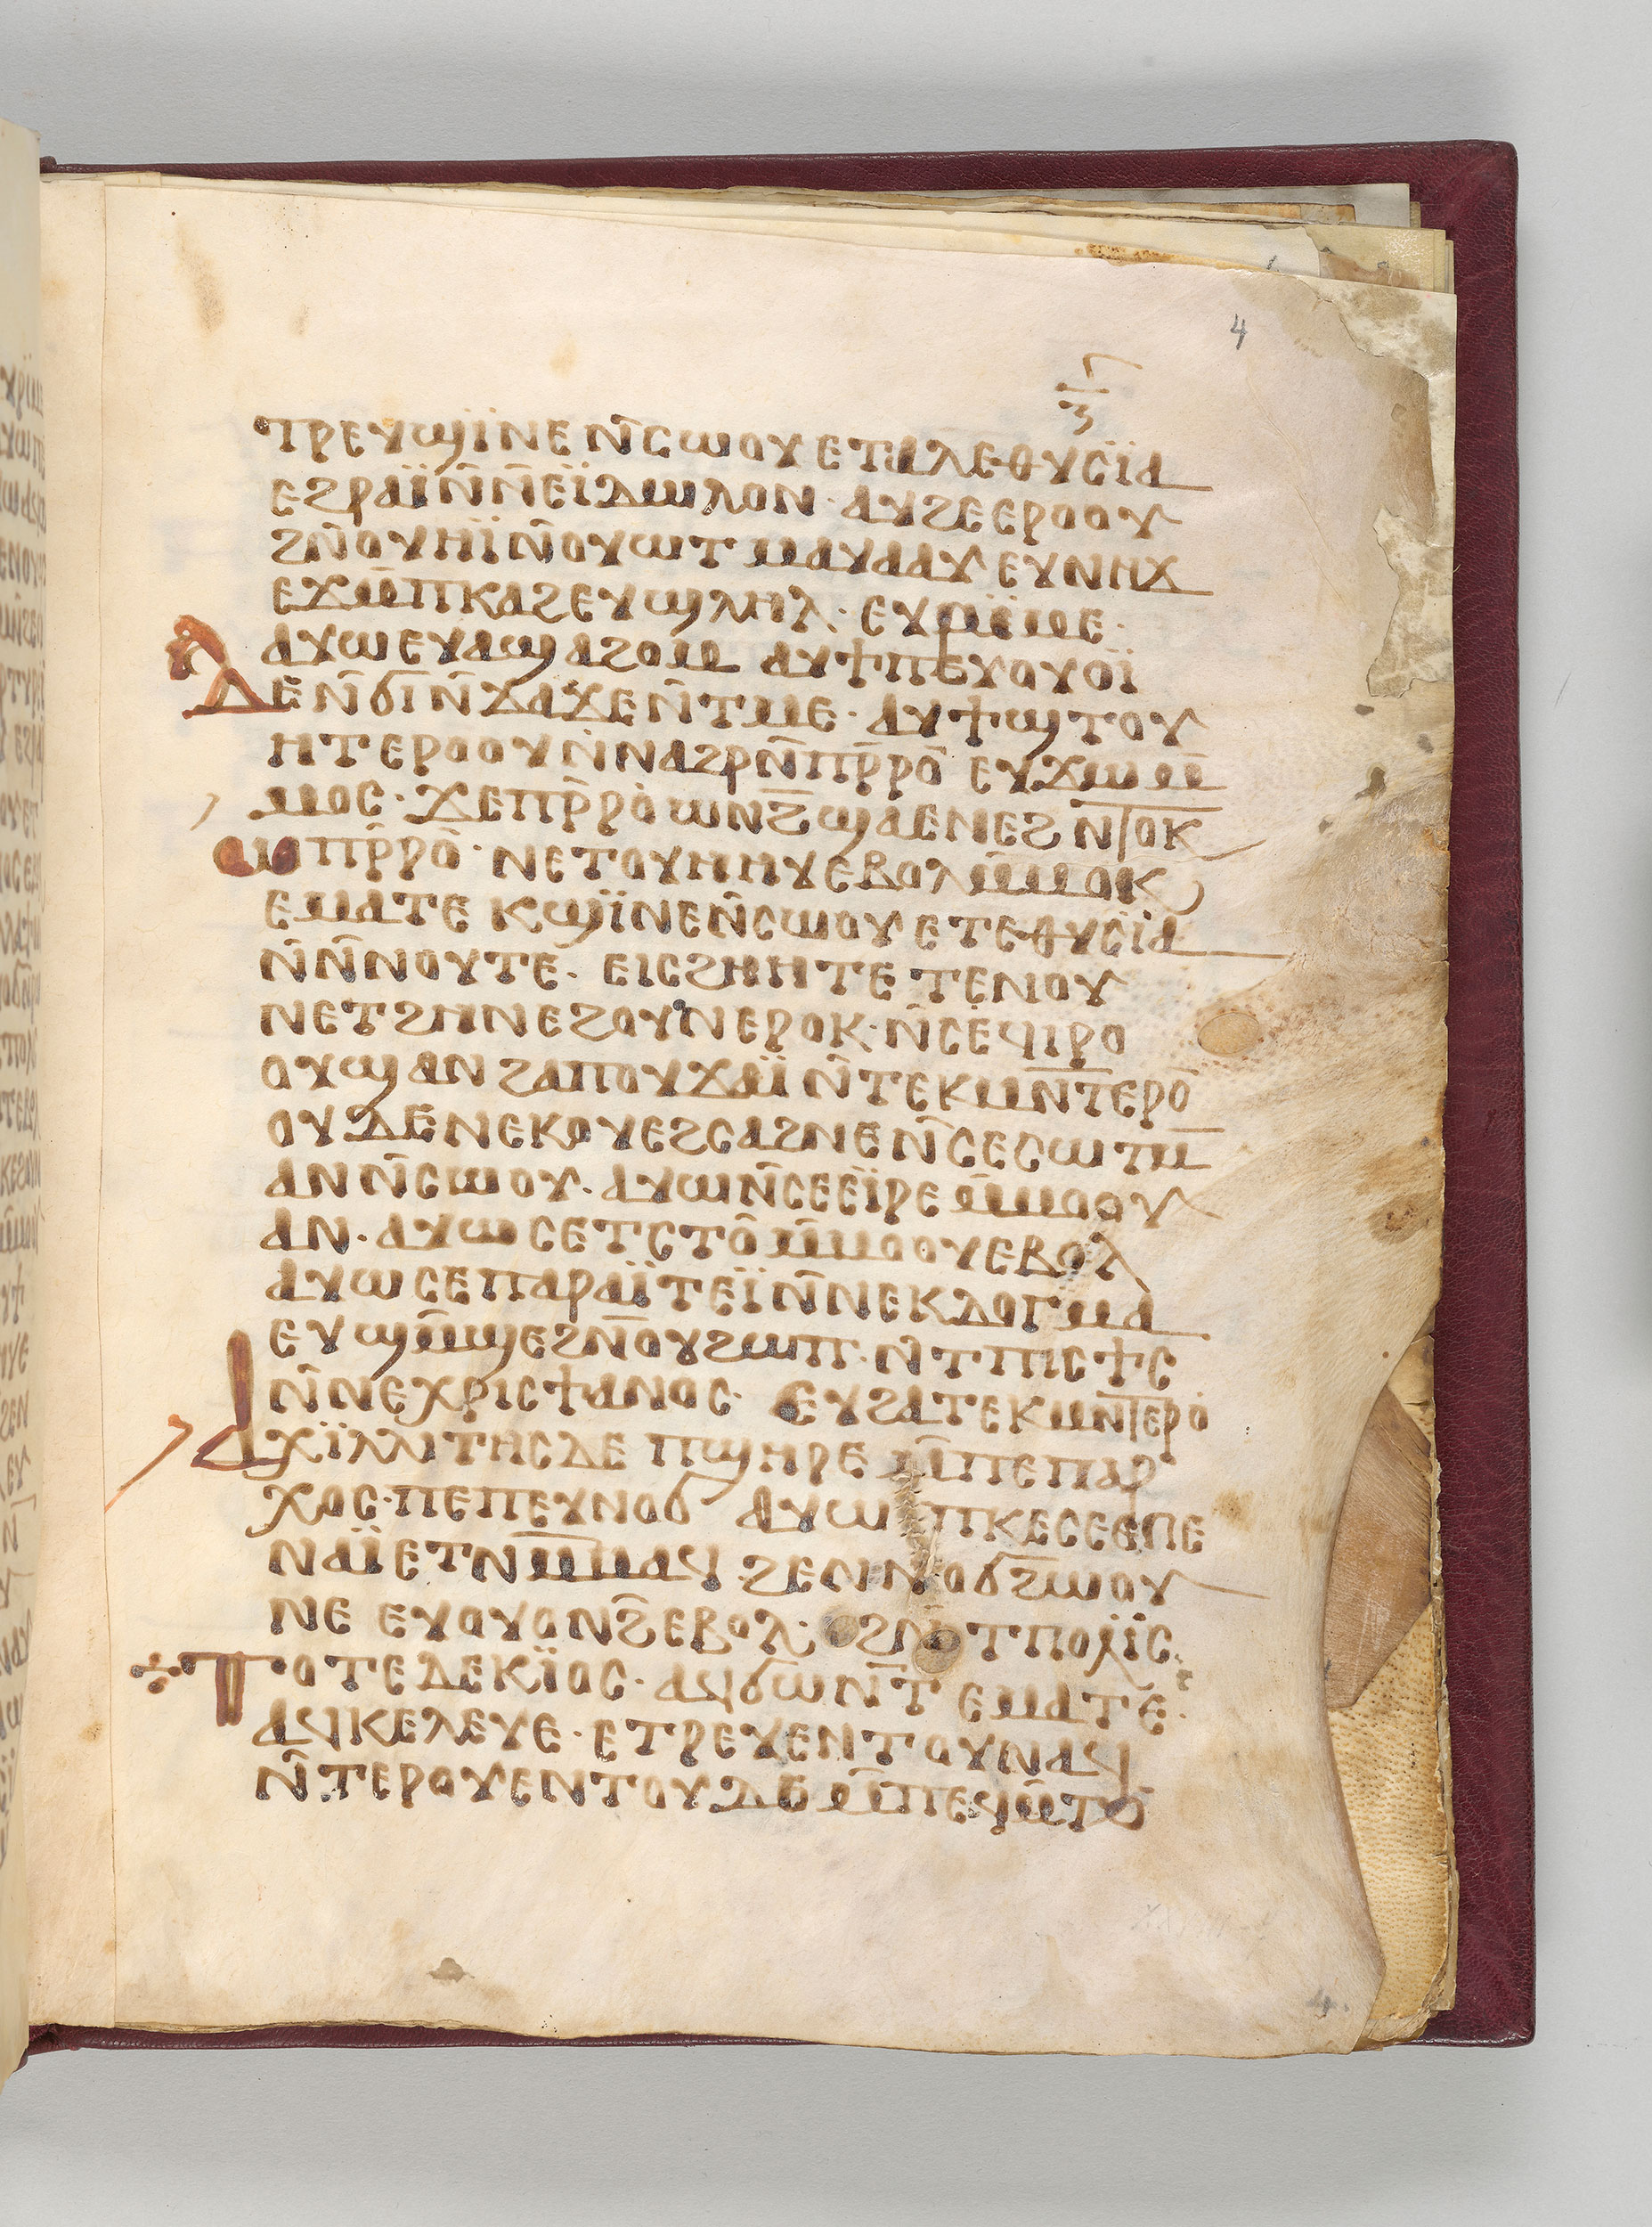 4
ⲍ̄
ⲧⲣⲉⲩϣⲓ̈ⲛⲉ ⲛ̄ⲥⲱⲟⲩ ⲉⲧⲁⲗⲉⲑⲩⲥⲓ̈ⲁ
ⲉϩⲣⲁⲓ̈ⲛ̄ⲛⲉⲓ̈ⲇⲱⲗⲟⲛ· ⲁⲩϩⲉ ⲉⲣⲟⲟⲩ
ϩⲛ̄ⲟⲩⲏⲓ̈ ⲛ̄ⲟⲩⲱⲧ ⲙⲁⲩⲁⲁⲩ ⲉⲩⲛⲏϫ
ⲉϫⲙ̄ⲡⲕⲁϩ ⲉⲩϣⲗⲏⲗ· ⲉⲩⲣⲓ̈ⲙⲉ·
ⲁⲩⲱ ⲉⲩⲁϣⲁϩⲟⲙ ⲁⲩϯⲡⲉⲩⲟⲩⲟⲓ̈
ⲇⲉ ⲛ̄ϭⲓⲛ̄ϫⲁϫⲉ ⲛ̄ⲧⲙⲉ· ⲁⲩϯϣⲧⲟⲩ
ⲏⲧ ⲉⲣⲟⲟⲩ ⲛ̄ⲛⲁϩⲣⲛ̄ⲡⲣ̄ⲣⲟ̄ ⲉⲩϫⲱⲙ̄
ⲙⲟⲥ· ϫⲉⲡⲣ̄ⲣⲟ̀ ⲱⲛϩ̄ ϣⲁⲉⲛⲉϩ ⲛ̄ⲧⲟⲕ
ⲱ ⲡⲣ̄ⲣⲟ̄· ⲛⲉⲧⲟⲩⲏⲏⲩ ⲉⲃⲟⲗ ⲙ̄ⲙⲟⲕ
ⲉⲙⲁⲧⲉ ⲕϣⲓ̈ⲛⲉ ⲛ̄ⲥⲱⲟⲩ ⲉⲧⲉⲑⲩⲥⲓ̈ⲁ
ⲛ̄ⲛ̄ⲛⲟⲩⲧⲉ· ⲉⲓⲥϩⲏⲏⲧⲉ ⲧⲉⲛⲟⲩ
ⲛⲉⲧϩⲏⲛ ⲉϩⲟⲩⲛ ⲉⲣⲟⲕ· ⲛ̄ⲥⲉϥⲓⲣⲟ
ⲟⲩϣ ⲁⲛ ϩⲁⲡⲟⲩϫⲁⲓ̈ ⲛ̄ⲧⲉⲕⲙⲛ̄ⲧⲉⲣⲟ̄
ⲟⲩⲇⲉ ⲛⲉⲕⲟⲩⲉϩⲥⲁϩⲛⲉ ⲛ̄ⲥⲉⲥⲱⲧⲙ̄
ⲁⲛ ⲛ̄ⲥⲱⲟⲩ· ⲁⲩⲱ ⲛ̄ⲥⲉⲉⲓ̈ⲣⲉ ⲙ̄ⲙⲟⲟⲩ
ⲁⲛ· ⲁⲩⲱ ⲥⲉⲧⲥⲧⲟ̄ ⲙ̄ⲙⲟⲟⲩ ⲉⲃⲟⲗ
ⲁⲩⲱ ⲥⲉⲡⲁⲣⲁⲓ̈ⲧⲉⲓ̈ ⲛ̄ⲛⲉⲕⲇⲟⲅⲙⲁ
ⲉⲩϣⲙ̄ϣⲉ ϩⲛ̄ⲟⲩϩⲱⲡ· ⲛ̄ⲧⲡⲓⲥϯⲥ
ⲛ̄ⲛⲉⲭⲣⲓⲥϯⲁⲛⲟⲥ· ⲉⲩϩⲁⲧⲉⲕⲙⲛ̄ⲧⲉⲣⲟ
ⲁⲭⲓ̈ⲗⲗⲓⲧⲏⲥ ⲇⲉ ⲡϣⲏⲣⲉ ⲙ̄ⲡⲉⲡⲁⲣ
ⲭⲟⲥ· ⲡⲉ ⲡⲉⲩⲛⲟϭ ⲁⲩⲱ ⲡⲕⲉⲥⲉⲉⲡⲉ
ⲛⲁⲓ̈ ⲉⲧⲛⲙ̄ⲙⲁϥ ϩⲉⲛⲛⲟϭ ϩⲱⲟⲩ
ⲛⲉ ⲉⲩⲟⲩⲟⲛϩ̄ ⲉⲃⲟⲗ· ϩⲛ̄ ⲧⲡⲟⲗⲓ̈ⲥ
ⲧⲟⲧⲉ ⲇⲉⲕⲓ̈ⲟⲥ· ⲁϥϭⲱⲛ̄ⲧ ⲉⲙⲁⲧⲉ·
ⲁϥⲕⲉⲗⲉⲩⲉ· ⲉⲧⲣⲉⲩⲉⲛⲧⲟⲩ ⲛⲁϥ
ⲛ̄ⲧⲉⲣⲟⲩⲉⲛⲧⲟⲩ ⲇⲉ ⲙ̄ⲡⲉϥⲙ̄ⲧⲟ